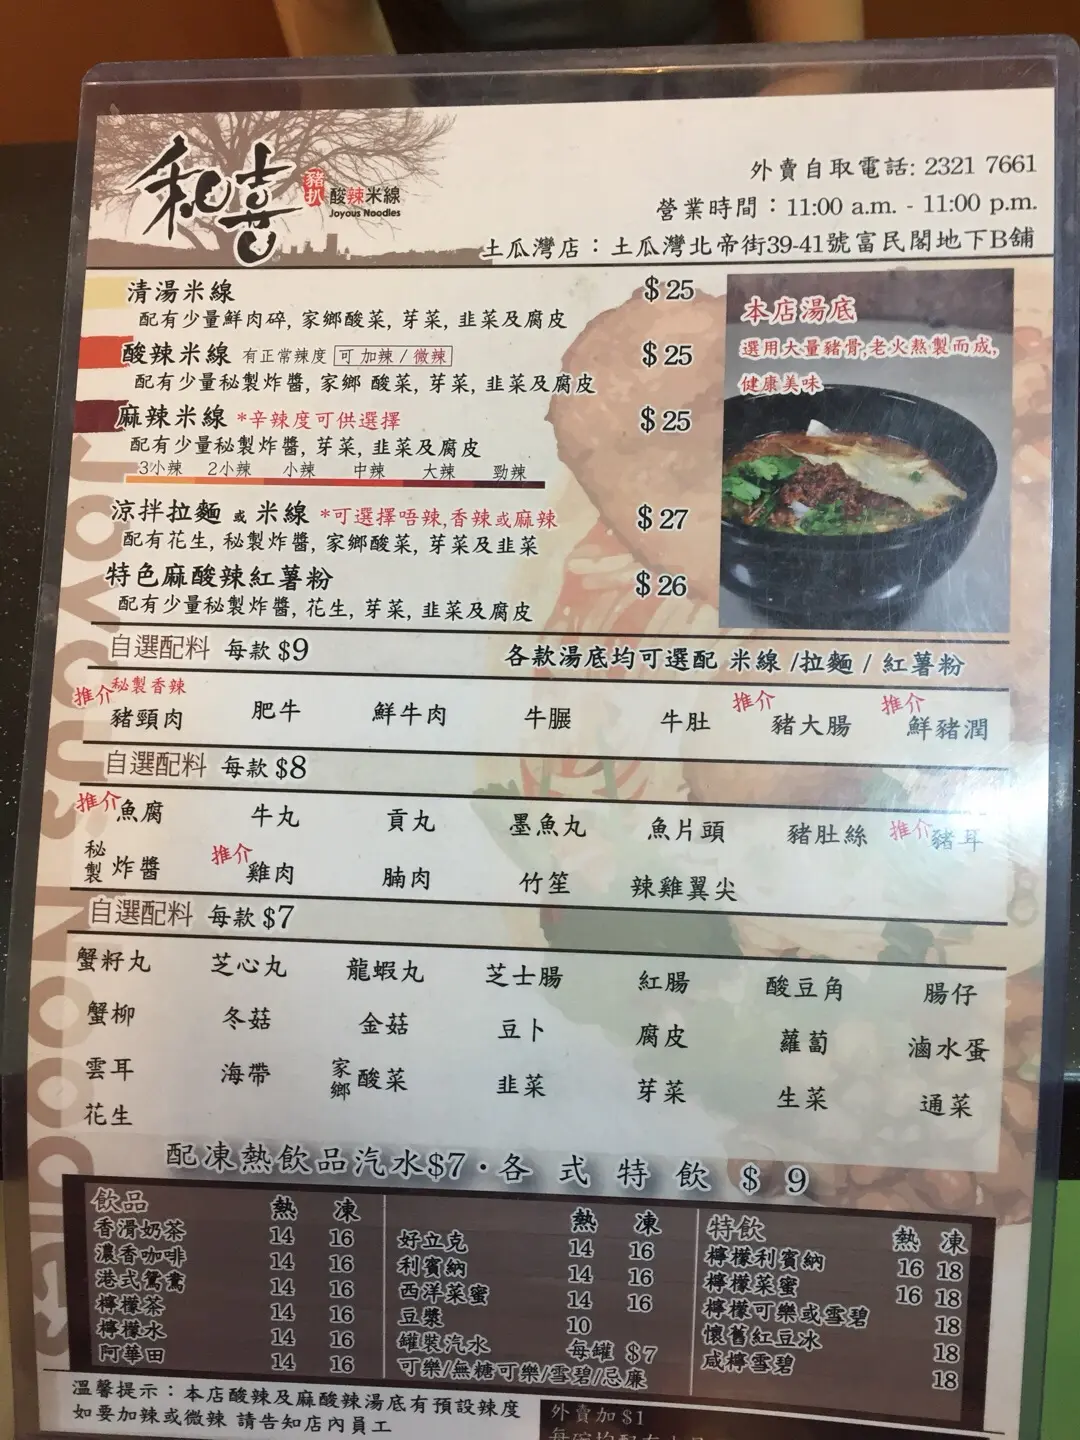 和喜 豬扒 酸辣米線
Joyous Noodles
外賣自取電話: 2321 7661
營業時間：11:00 a.m. - 11:00 p.m.
土瓜灣店：土瓜灣北帝街39-41號富民閣地下B舖
清湯米線 $25
配有少量鮮肉碎, 家鄉酸菜, 芽菜, 韭菜及腐皮
酸辣米線 有正常辣度 可加辣/微辣 $25
配有少量秘製炸醬, 家鄉酸菜, 芽菜, 韭菜及腐皮
麻辣米線 *辛辣度可供選擇 $25
配有少量秘製炸醬, 芽菜, 韭菜及腐皮
3小辣 2小辣 小辣 中辣 大辣 勁辣
涼拌拉麵 或 米線 *可選擇唔辣,香辣或麻辣 $27
配有花生, 秘製炸醬, 家鄉酸菜, 芽菜及韭菜
特色麻酸辣紅薯粉 $26
配有少量秘製炸醬, 花生, 芽菜, 韭菜及腐皮
本店湯底
選用大量豬骨,老火熬製而成,
健康美味
自選配料 每款$9 各款湯底均可選配 米線 /拉麵 / 紅薯粉
推介 秘製香辣 豬頸肉 肥牛 鮮牛肉 牛𦟌 牛肚 推介 豬大腸 推介 鮮豬潤
自選配料 每款$8
推介 魚腐 牛丸 貢丸 墨魚丸 魚片頭 豬肚絲 推介 豬耳
秘製 炸醬 推介 雞肉 腩肉 竹笙 辣雞翼尖
自選配料 每款$7
蟹籽丸 芝心丸 龍蝦丸 芝士腸 紅腸 酸豆角 腸仔
蟹柳 冬菇 金菇 豆卜 腐皮 蘿蔔 滷水蛋
雲耳 海帶 家鄉 酸菜 韭菜 芽菜 生菜 通菜
花生
配凍熱飲品汽水$7・各式特飲$9
飲品 熱 凍
香滑奶茶 14 16
濃香咖啡 14 16
港式鴛鴦 14 16
檸檬茶 14 16
檸檬水 14 16
阿華田 14 16
熱 凍
好立克 14 16
利賓納 14 16
西洋菜蜜 14 16
豆漿 10
罐裝汽水 每罐 $7
可樂/無糖可樂/雪碧/忌廉
特飲 熱 凍
檸檬利賓納 16 18
檸檬菜蜜 16 18
檸檬可樂或雪碧 18
懷舊紅豆冰 18
咸檸雪碧 18
溫馨提示：本店酸辣及麻酸辣湯底有預設辣度
如要加辣或微辣 請告知店內員工
外賣加$1
JOYOUS NOODLES